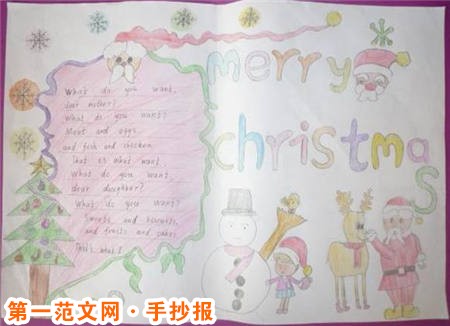 merry
christmas
What do you want,
dear mother?
What do you want?
Meat and eggs
and fish and chicken
That is what want.
What do you want,
dear daughter?
What do you want?
Sweets and biscuits,
and fruits and cakes,
That's what I
第一范文网·手抄报